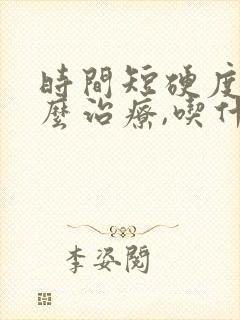 時間短硬度
麼治療,喫什
李姿閱